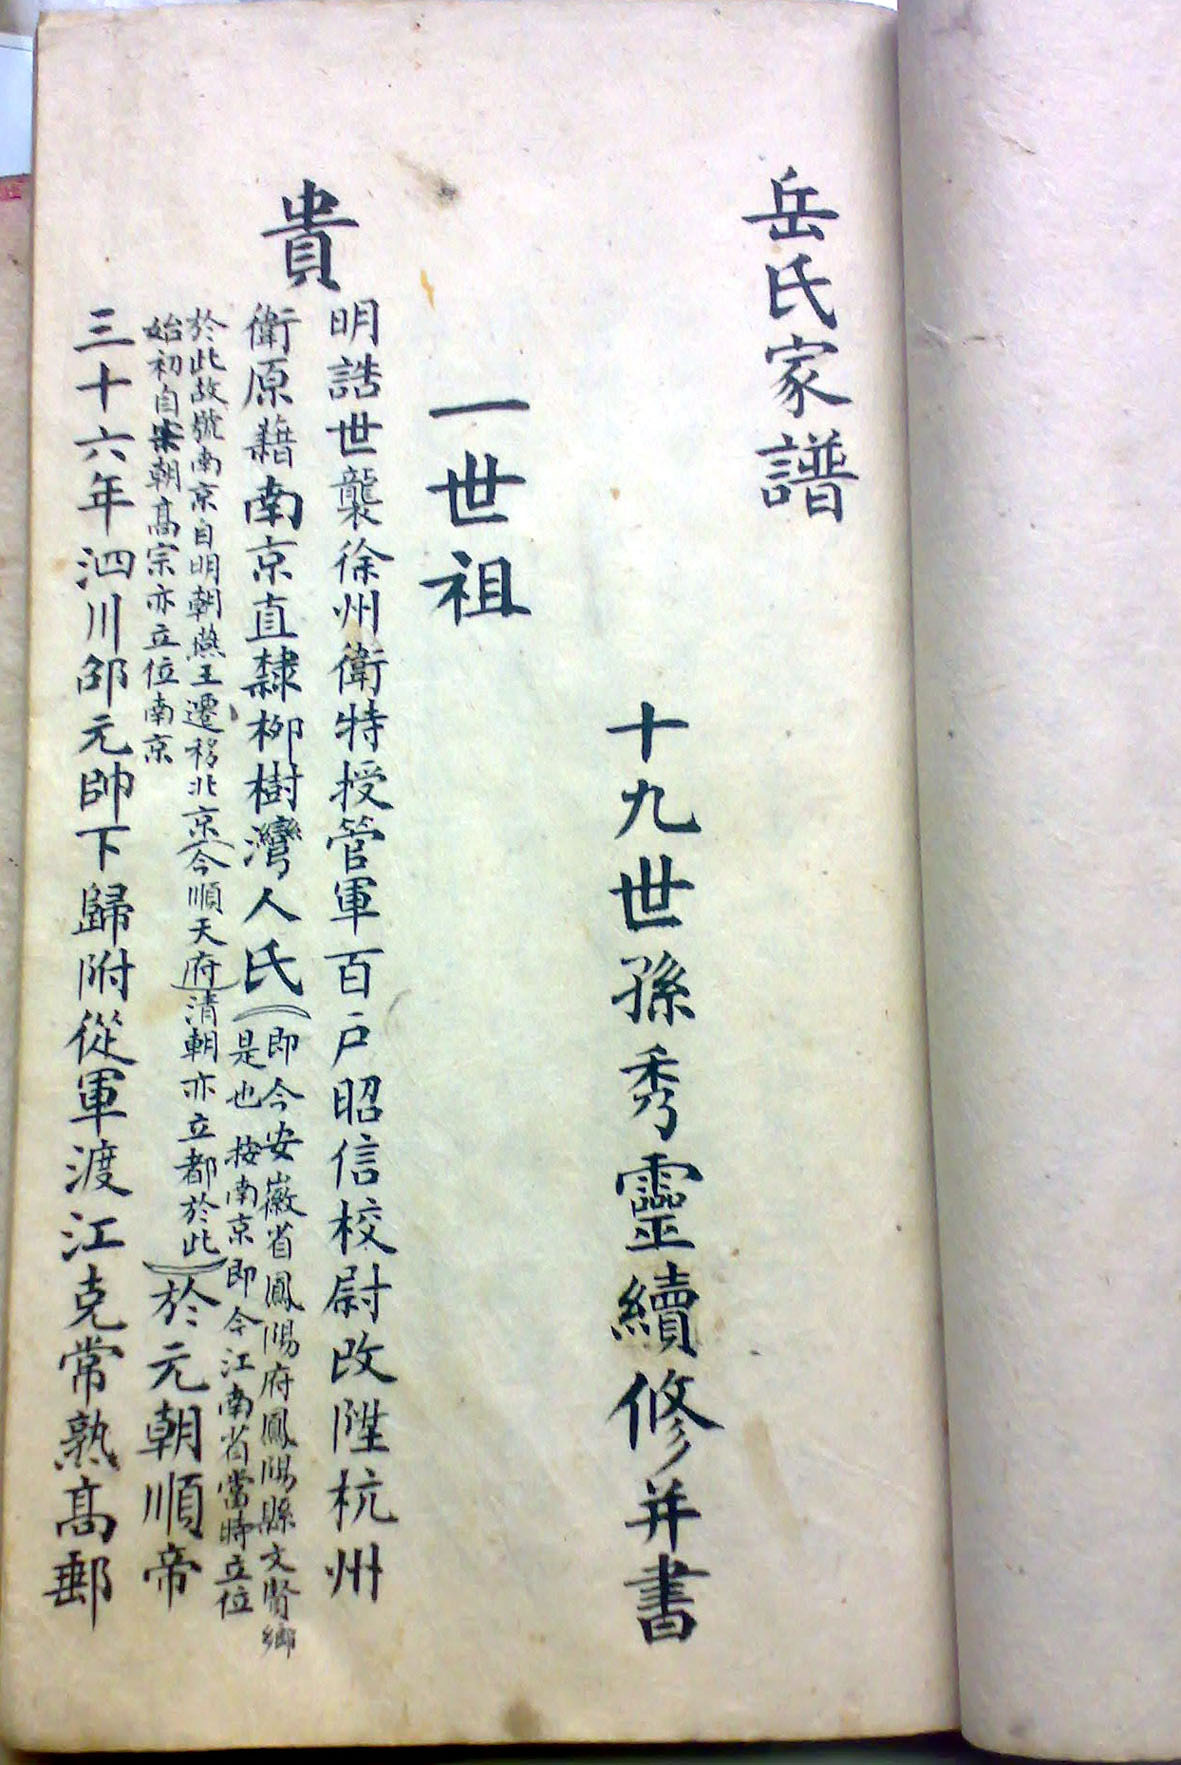 岳氏家譜
十九世孫秀靈續修并書
一世祖
貴
明誥世襲徐州衛特授管軍百户昭信校尉改陞杭州
衛原藉南京直隸柳樹灣人氏（即今安徽省鳳陽府鳳陽縣文賢鄉
是也 按南京即今江南省當時立位
於此故號南京自明朝燕王遷移北京（今順天府）清朝亦立都於此
始初自宋朝高宗亦立位南京
）於元朝順帝
三十六年泗川邵元帥下歸附從軍渡江克常熟高郵